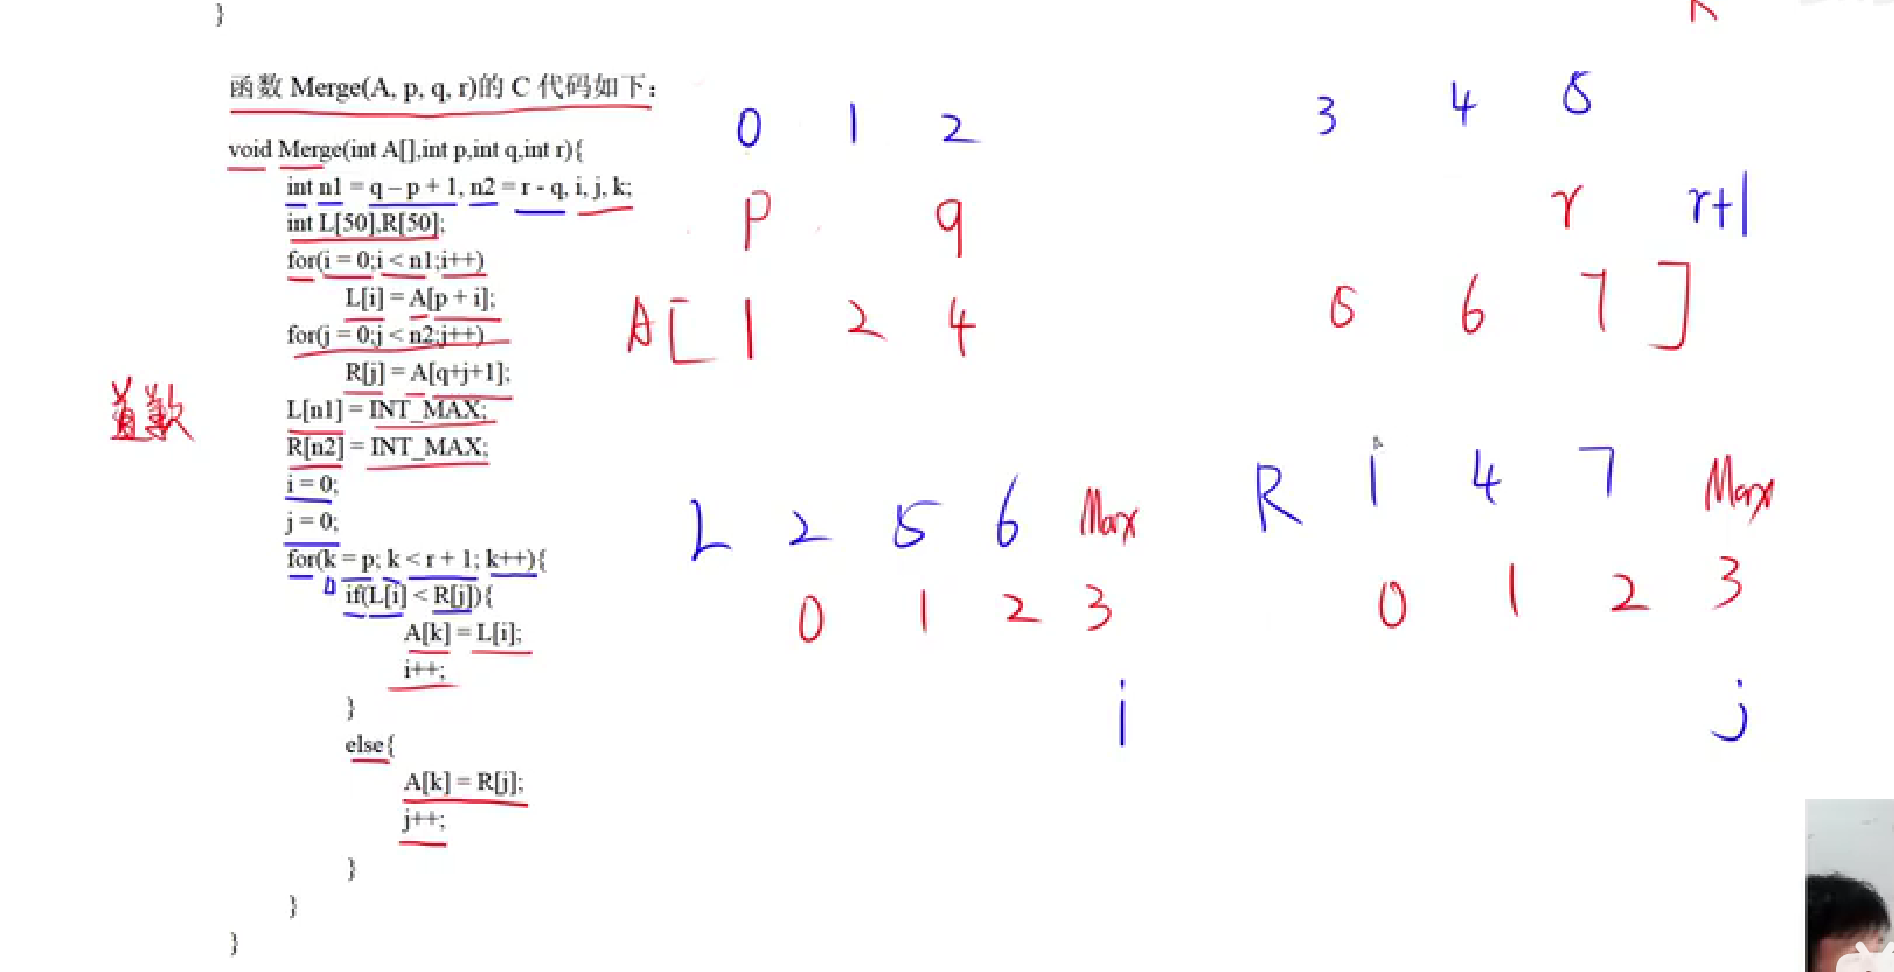 }
函数 Merge(A, p, q, r)的 C 代码如下：
void Merge(int A[],int p,int q,int r){
int n1 = q – p + 1, n2 = r - q, i, j, k;
int L[50],R[50];
for(i = 0;i < n1;i++)
L[i] = A[p + i];
for(j = 0;j < n2;j++)
R[j] = A[q+j+1];
L[n1] = INT_MAX;
R[n2] = INT_MAX;
i = 0;
j = 0;
for(k = p; k < r + 1; k++){
if(L[i] < R[j]){
A[k] = L[i];
i++;
}
else{
A[k] = R[j];
j++;
}
}
}
0 1 2 3 4 5
p q r r+1
A[ 1 2 4 5 6 7 ]
L 2 5 6 Max R 1 4 7 Max
0 1 2 3 0 1 2 3
i j